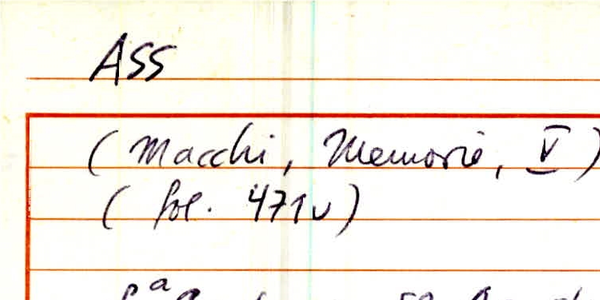 ASS
(Macchi, Memorie, V)
(fol. 471v)